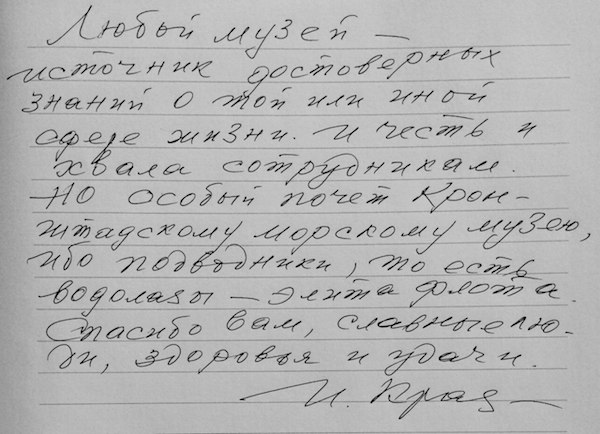 Любой музей —
источник достоверных
знаний о той или иной
сфере жизни. И честь и
хвала сотрудникам.
Но особый почет Крон-
штадскому морскому музею,
ибо подводники, то есть
водолазы — элита флота.
Спасибо вам, славные лю-
ди, здоровья и удачи.
И.